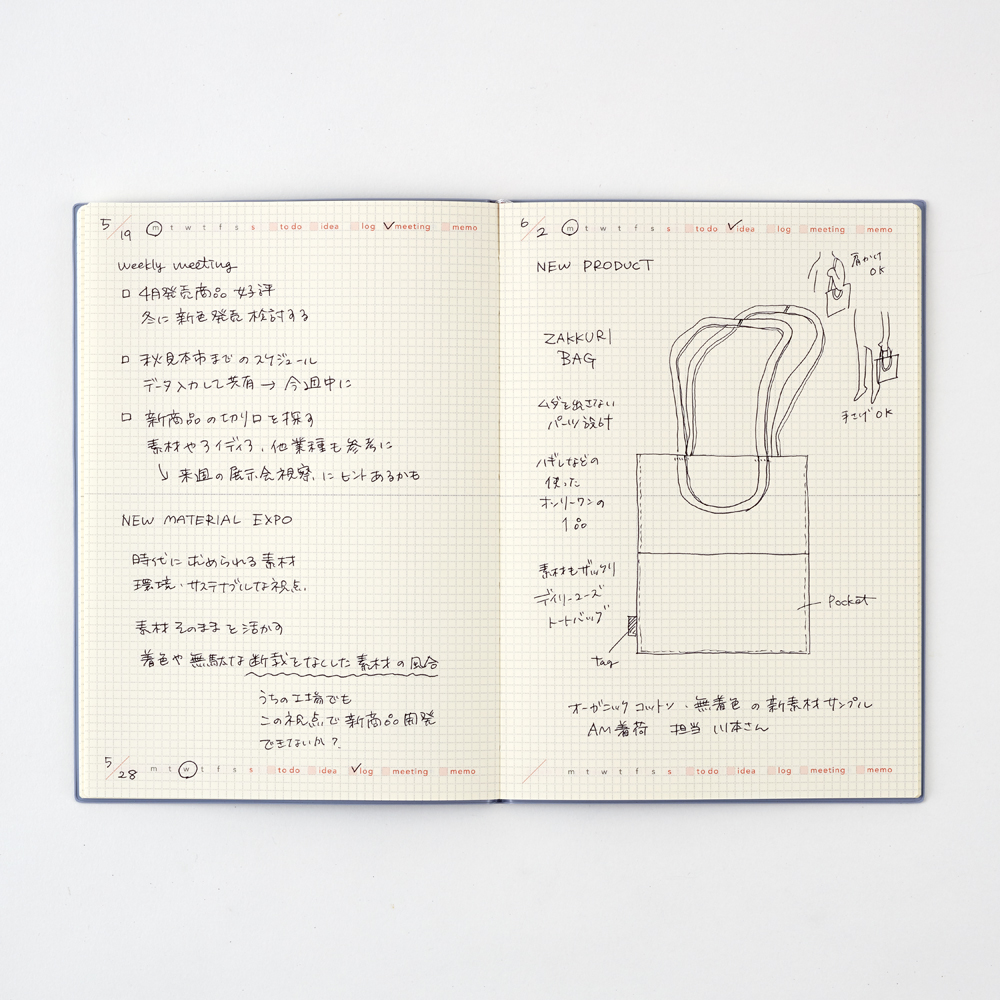 5/19 m t w t f s s to do idea log ✓meeting memo
weekly meeting
□ 4月発売商品 好評
冬に新色発売 検討する
□ 秋見本市までのスケジュール
データ入力して共有 → 今週中に
□ 新商品の切り口を探す
素材やアイディア、他業種も参考に
↳ 来週の展示会視察、にヒントあるかも
NEW MATERIAL EXPO
時代に求められる素材
環境・サステナブルな視点、
素材そのままを活かす
着色や無駄な断裁をなくした素材の風合
うちの工場でも
この視点で新商品開発
できないか?
5/28 m t w t f s s to do idea ✓log meeting memo
6/2 m t w t f s s to do ✓idea log meeting memo
NEW PRODUCT
肩かけ
OK
手さげOK
ZAKKURI
BAG
ムダを出さない
パーツ設計
ハギレなどの
使った
オンリーワンの
1品
素材もザックリ
デイリーユーズ
トートバッグ
Pocket
tag
オーガニックコットン・無着色の新素材サンプル
AM着荷 担当 川本さん
/ m t w t f s s to do idea log meeting memo